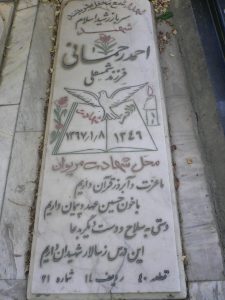 پاسدار رشید اسلام
شهید
احمد رحمانی
فرزند شمسعلی
شهادت
۱۳۴۶ ۱۳۶۷/۱/۸
محل شهادت مریوان
ما عزت و آبرو ز قرآن داریم
با خون حسین عهد و پیمان داریم
دستی به سلاح و دست دیگر به دعا
این درس ز سالار شهیدان داریم
قطعه ۴۰ ردیف ۱۷ شماره ۲۱